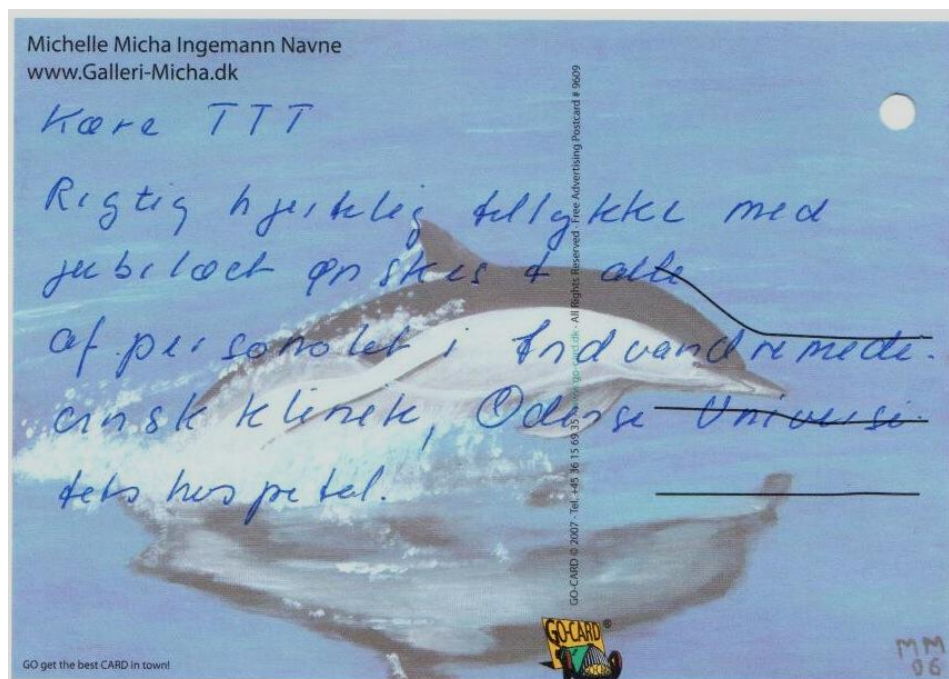 Michelle Micha Ingemann Navne
www.Galleri-Micha.dk
Kære TTT
Rigtig hjertelig tillykke med
jubilæet ønskes I alle
af personalet i Indvandremedi-
cinsk klinik, Odense Universi-
tets hospital.
GO-CARD © 2007 · Tel. +45 36 15 69 35 · www.go-card.dk · All Rights Reserved · Free Advertising Postcard # 9609
GO-CARD ®
GO get the best CARD in town!
MM
06